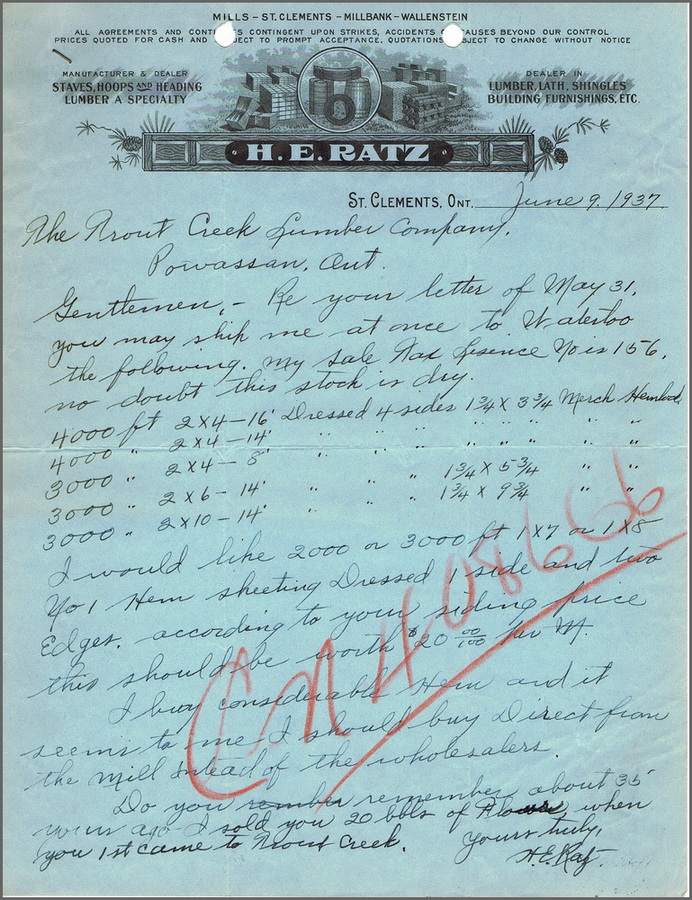 MILLS – ST. CLEMENTS – MILLBANK – WALLENSTEIN
ALL AGREEMENTS AND CONT S CONTINGENT UPON STRIKES, ACCIDENTS AUSES BEYOND OUR CONTROL
PRICES QUOTED FOR CASH AND S JECT TO PROMPT ACCEPTANCE. QUOTATIONS BJECT TO CHANGE WITHOUT NOTICE
MANUFACTURER & DEALER
STAVES, HOOPS AND HEADING
LUMBER A SPECIALTY
DEALER IN
LUMBER, LATH, SHINGLES
BUILDING FURNISHINGS, ETC.
H. E. RATZ
ST. CLEMENTS, ONT. June 9. 1937.
The Trout Creek Lumber Company,
Powassan, Ont.
Gentlemen, – Re your letter of May 31,
you may ship me at once to Waterloo
the following. My Sale Tax Lisence No is 156,
no doubt this stock is dry.
4000 ft 2 x 4 – 16' Dressed 4 sides 1 3/4 x 3 3/4 Merch Hemlock
4000 " 2 x 4 – 14' " " " " " "
3000 " 2 x 4 – 8' " " " " " "
3000 " 2 x 6 – 14' " " " 1 3/4 x 5 3/4 " "
3000 " 2 x 10 – 14' " " " 1 3/4 x 9 3/4 " "
I would like 2000 or 3000 ft 1 x 7 or 1 x 8
No 1 Hem sheeting Dressed 1 side and two
Edges. according to your siding price
this should be worth $20 00/100 per M.
I buy considerable Hem and it
seems to me I should buy Direct from
the mill intead of the wholesalers.
Do you remember about 35
years ago I sold you 20 bbls of Flour, when
you 1st came to Trout Creek.
Yours truly,
H. E. Ratz.
CN 408666